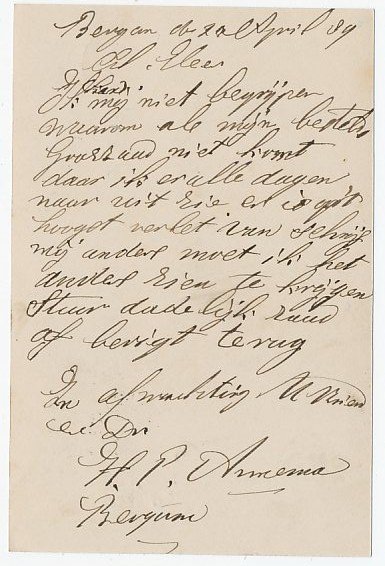 Bergum de 20 April 89
Heer
Ik kan
mij niet begrijpen
waarom als mijn bestelde
zaad niet komt
daar ik er alle dagen
naar uit zie er is
hoogst verlet van schrijf
mij anders moet ik het
anders zien te krijgen
Stuur dadelijk zaad
of berigt terug
In afwachting U Vriend
en Dr
H. P. Annema
Bergum